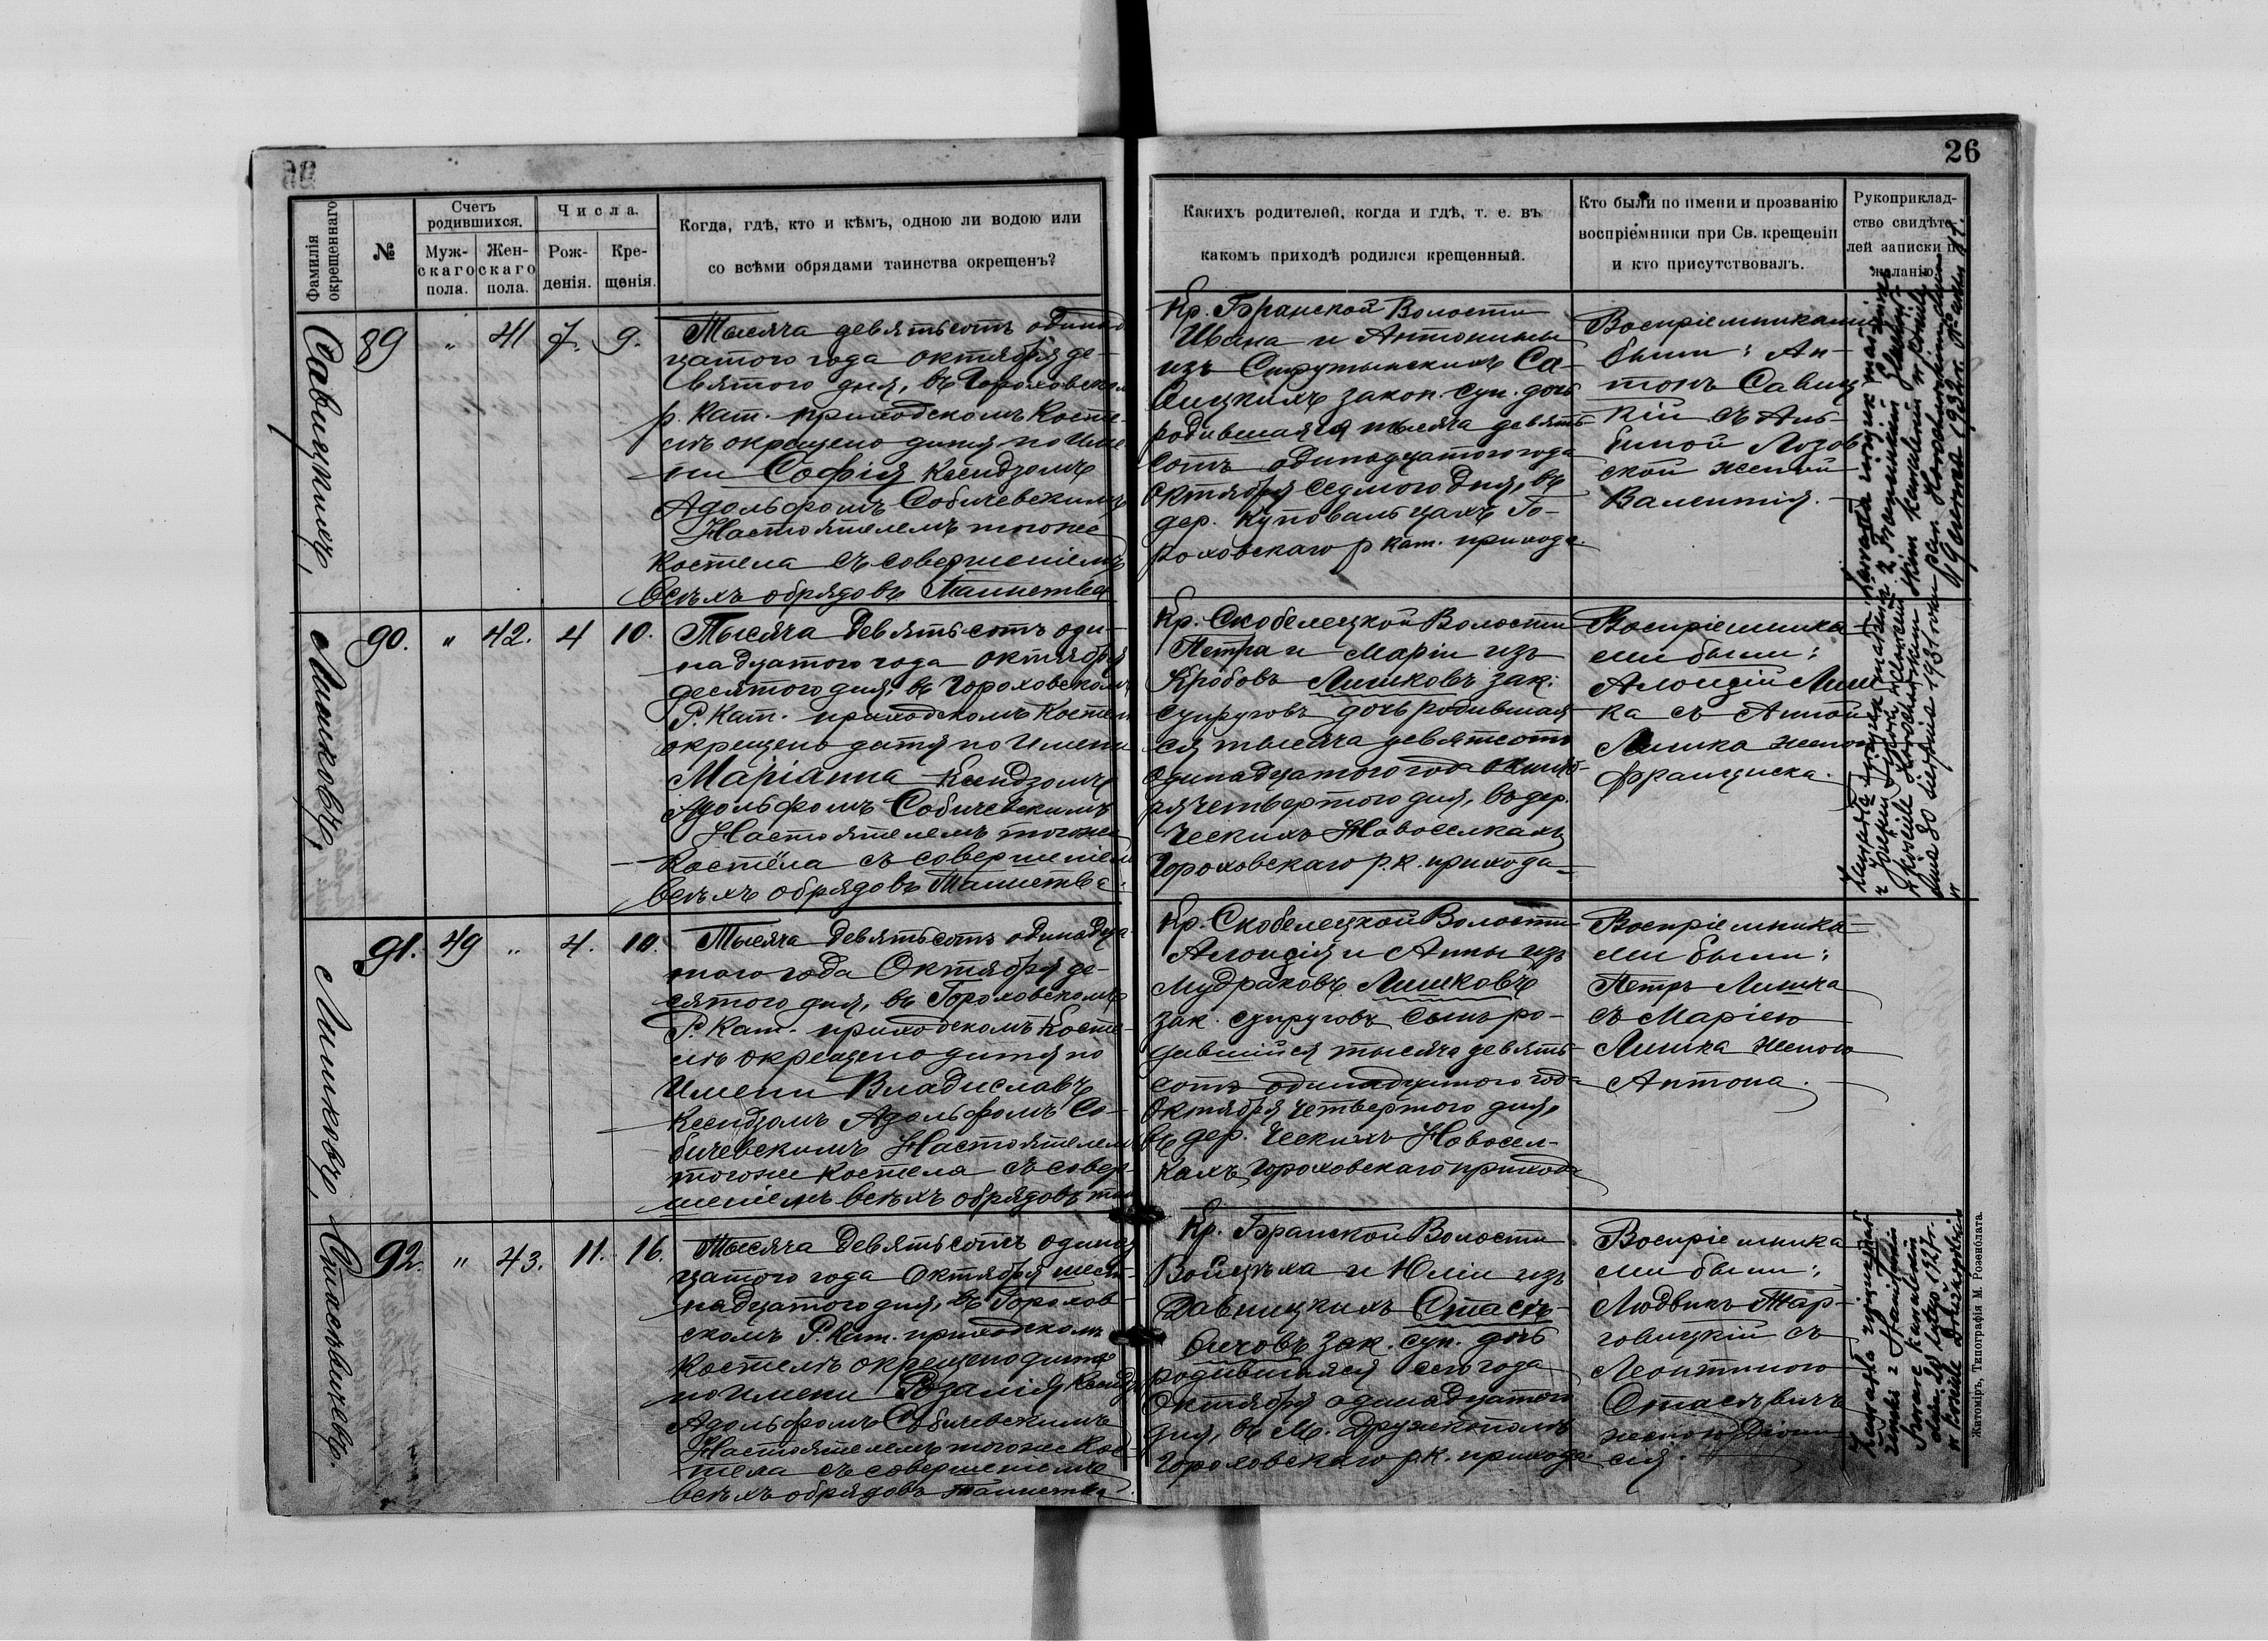 26
Фамилія окрещеннаго
№
Счетъ родившихся.
Мужскаго пола.
Женскаго пола.
Числа.
Рожденія.
Крещенія.
Когда, гдѣ, кто и кѣмъ, одною ли водою или
со всѣми обрядами таинства окрещенъ?
Какихъ родителей, когда и гдѣ, т. е. въ
какомъ приходѣ родился крещенный.
Кто были по имени и прозванію
воспріемники при Св. крещеніи
и кто присутствовалъ.
Рукоприклад-
ство свидѣте-
лей записки по
желанію.
Савицкихъ,
89 " 41 7. 9.
Тысяча девятьсотъ одинад
цатого года октября де-
вятого дня, въ Гороховском
р. Кат. приходскомъ Косте-
лѣ окрещено дитя по Име
ни Софія Ксендзомъ
Адольфомъ Собичевскимъ
Настоятелемъ тогоже
костела съ совершеніемъ
всѣхъ обрядовъ Таинства
Кр. Бранской Волости
Ивана и Антонины
изъ Са-
вицкихъ закон. суп. дочь
родившаяся тысяча девять-
сотъ одинадцатого года
Октября седмого дня, въ
дер. Куповальцахъ Го-
роховскаго р кат. прихода.
Воспріемниками
были: Ан-
тонъ Савиц
кій съ Аль-
биной Лозов
ской женой
Валентія.
Лишковъ,
90. " 42. 4 10.
Тысяча девятьсотъ оди-
надцатого года октября
десятого дня, въ Гороховскомъ
Р. Кат. приходскомъ Костел
окрещено дитя по Имени
Маріанна Ксендзомъ
Адольфомъ Собичевскимъ
Настоятелемъ тогоже
Костела съ совершеніем
всѣхъ обрядовъ Таинства.
Кр. Скобелецкой Волости
Петра и Маріи изъ
Кробовъ Лишковъ зак.
супруговъ дочь родившая
ся тысяча девятсотъ
одинадцатого года октяб-
ря четвертого дня, въ дер.
Ческихъ Новоселкахъ
Гороховскаго р.к. прихода
Воспріемника-
ми были:
Алоизій Лиш
ка съ Анной
Лишка женой
Франциска.
Лишковъ,
91. 49 " 4. 10.
Тысяча девятьсотъ одинадца
того года Октября де-
сятого дня, въ Гороховскомъ
Р. Кат. приходскомъ Косте-
лѣ окрещено дитя по
Имени Владиславъ
Ксендзомъ Адольфомъ Со-
бичевскимъ Настоятелем
тогоже Костела съ совер-
шеніемъ всѣхъ обрядовъ
Кр. Скобелецкой Волости
Алоизія и Анны изъ
Мудраковъ Лишковъ
зак. супруговъ сынъ ро-
дившійся тысяча девять-
сотъ одинадцатого года
Октября четвертого дня,
въ дер. Ческихъ Новосел-
кахъ, Гороховскаго прихода
Воспріемника-
ми были:
Петръ Лишка
съ Маріею
Лишка женою
Антона.
Стасѣвичевъ.
92. " 43. 11. 16.
Тысяча девятьсотъ одинад
цатого года Октября шест-
надцатого дня, въ Горохов-
скомъ Р. Кат. приходскомъ
Костелѣ окрещено дитя
по имени Розалія Ксендз
Адольфомъ Собичевскимъ
Настоятелемъ тогоже Кос-
тела съ совершеніемъ
всѣхъ обрядовъ таинства.
Кр. Бранской Волости
Войцѣха и Юліи изъ
Стасѣ-
вичовъ зак. суп. дочь
родившаяся сего года
Октября одинадцатого
дня, въ М. Дружкополѣ
Гороховскаго р.к. прихода
Воспріемника
ми были:
Людвикъ Тар-
говицкій съ
Леонтиною
Стасѣвичъ
женою Діони
сія.
Житоміръ, Типографія М. Розенблата.